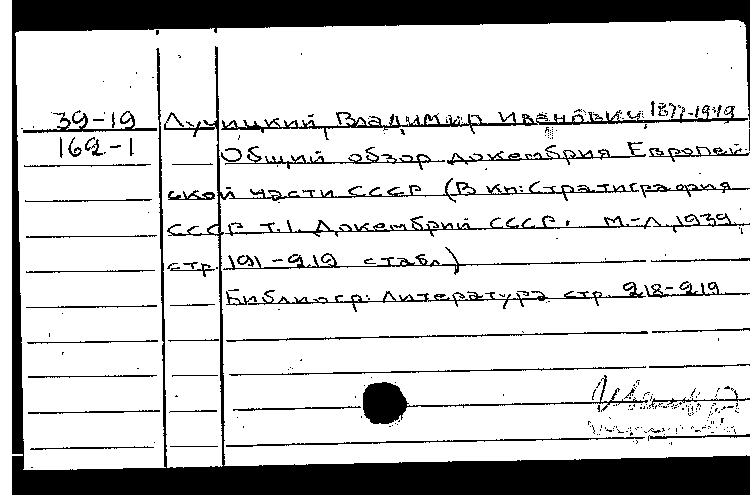 39-19 Лучицкий, Владимир Иванович, 1877-1949
162-1 Общий обзор докембрия Европей-
ской части СССР (В кн: Стратиграфия
СССР т.1. Докембрий СССР. М.-Л, 1939,
стр. 191-219 с табл)
Библиогр: Литература стр. 218-219